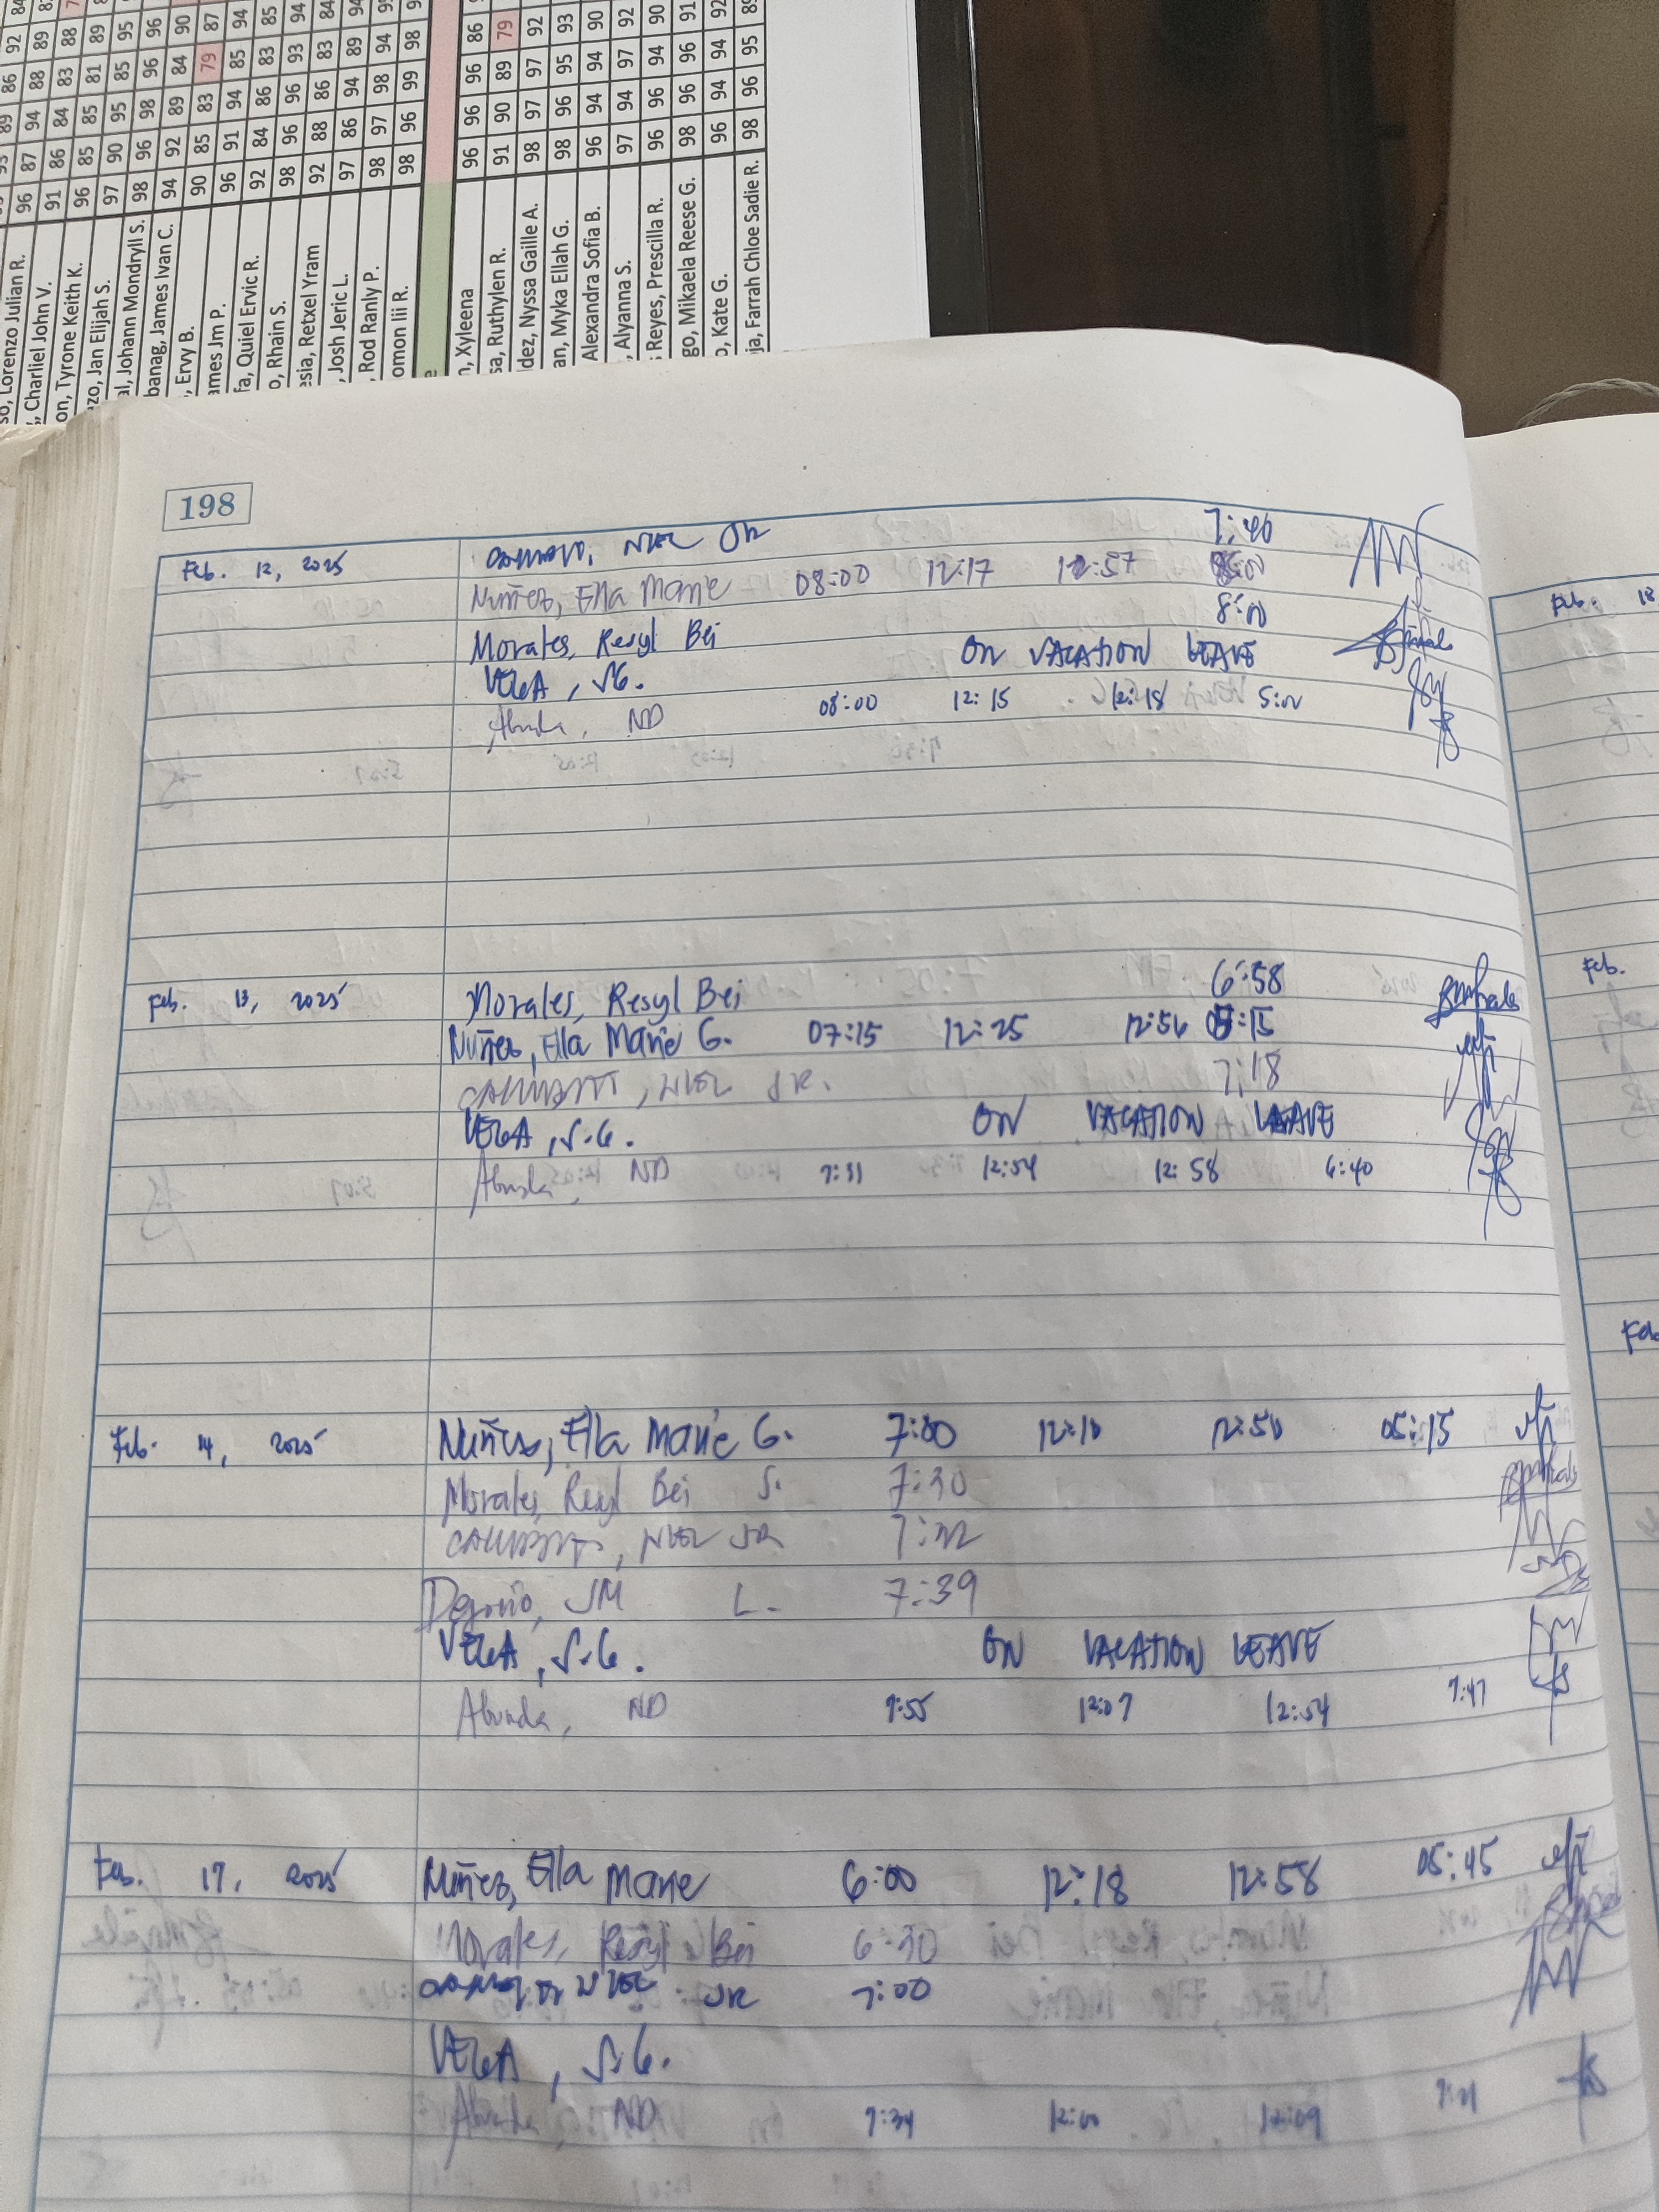 Lorenzo Julian R. 96 87 94 88 89
Charliel John V. 91 86 84 83 88
Tyrone Keith K. 96 85 85 81 89
Jan Elijah S. 97 90 95 85 95
Johann Mondryll S. 98 96 98 96 96
James Ivan C. 94 92 89 84 90
Ervy B. 90 85 83 79 87
Jm P. 96 91 94 85 94
Quiel Ervic R. 92 84 86 83 85
Rhain S. 98 96 96 93 94
Retxel Yram 92 88 86 83 84
Josh Jeric L. 97 86 94 89 94
Rod Ranly P. 98 97 98 94
Iii R. 98 96 99 98
Xyleena 96 96 96 86
Ruthylen R. 91 90 89 79
Nyssa Gaille A. 98 97 97 92
Myka Ellah G. 98 96 95 93
Alexandra Sofia B. 96 94 94 90
Alyanna S. 97 94 97 92
Reyes, Prescilla R. 96 96 94 90
Mikaela Reese G. 98 96 96 91
Kate G. 96 94 94 92
Farrah Chloe Sadie R. 98 96 95 89
198
Feb. 12, 2025 JR 7:40
Nuñez, Ella Marie 08:00 12:17 12:57
Morales, Resyl Bei 8:00
VEGA, S.G. ON VACATION LEAVE
Abunda, ND 08:00 12:15 12:18 5:00
Feb. 13, 2025 Morales, Resyl Bei 6:58
Nuñez, Ella Marie G. 07:15 12:25 12:56 05:15
JR. 7:18
VEGA, S.G. ON VACATION LEAVE
Abunda, ND 7:31 12:54 12:58 6:40
Feb. 14, 2025 Nuñez, Ella Marie G. 7:00 12:10 12:50 05:15
Morales, Resyl Bei S. 7:30
JR 7:32
JM L. 7:39
VEGA, S.G. ON VACATION LEAVE
Abunda, ND 7:55 12:07 12:54 7:47
Feb. 17, 2025 Nuñez, Ella Marie 6:00 12:18 12:58 05:45
Morales, Resyl Bei 6:30
JR 7:00
VEGA, S.G.
Abunda, ND 7:34 12:00 12:09 7:21
Feb. 18
Feb.
Feb